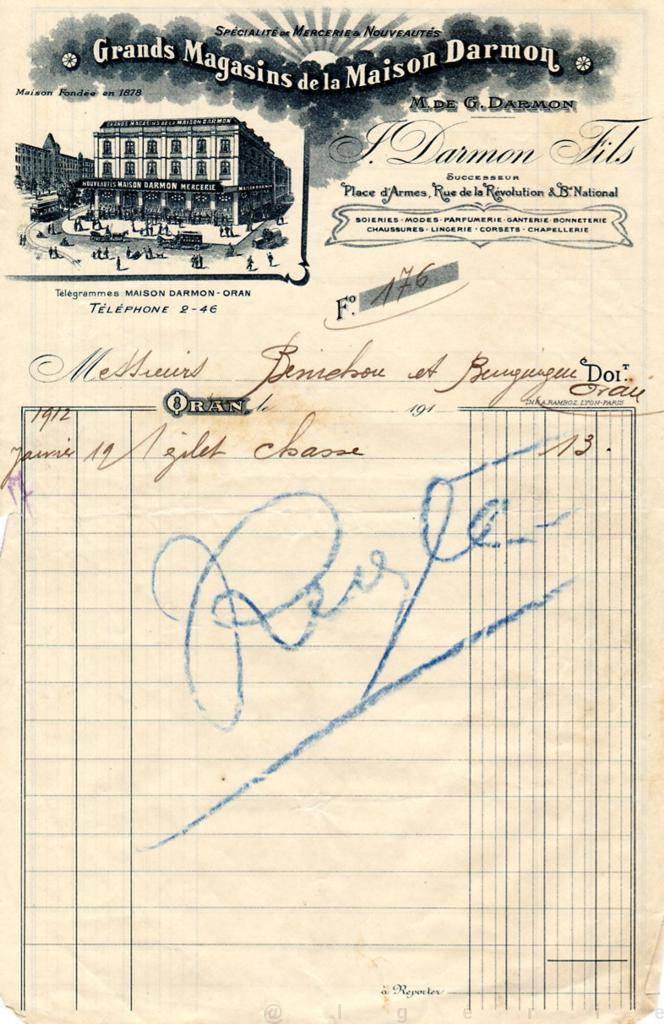 SPÉCIALITÉ DE MERCERIE & NOUVEAUTÉS
Grands Magasins de la Maison Darmon
Maison Fondée en 1878
M. DE G. DARMON
J. Darmon Fils
SUCCESSEUR
Place d'Armes, Rue de la Révolution & Bd National
SOIERIES · MODES · PARFUMERIE · GANTERIE · BONNETERIE
CHAUSSURES · LINGERIE · CORSETS · CHAPELLERIE
GRANDS MAGASINS DE LA MAISON DARMON
NOUVEAUTÉS MAISON DARMON MERCERIE
Télégrammes: MAISON DARMON - ORAN
TÉLÉPHONE 2-46
Fo. 176
Messieurs Benichou et DOIT.
Oran
IMP. A. RAMBOZ. LYON-PARIS
ORAN, le 191
1912
Janvier 12 1 gilet chasse 13.
Réglé
à Reporter
@lgerie